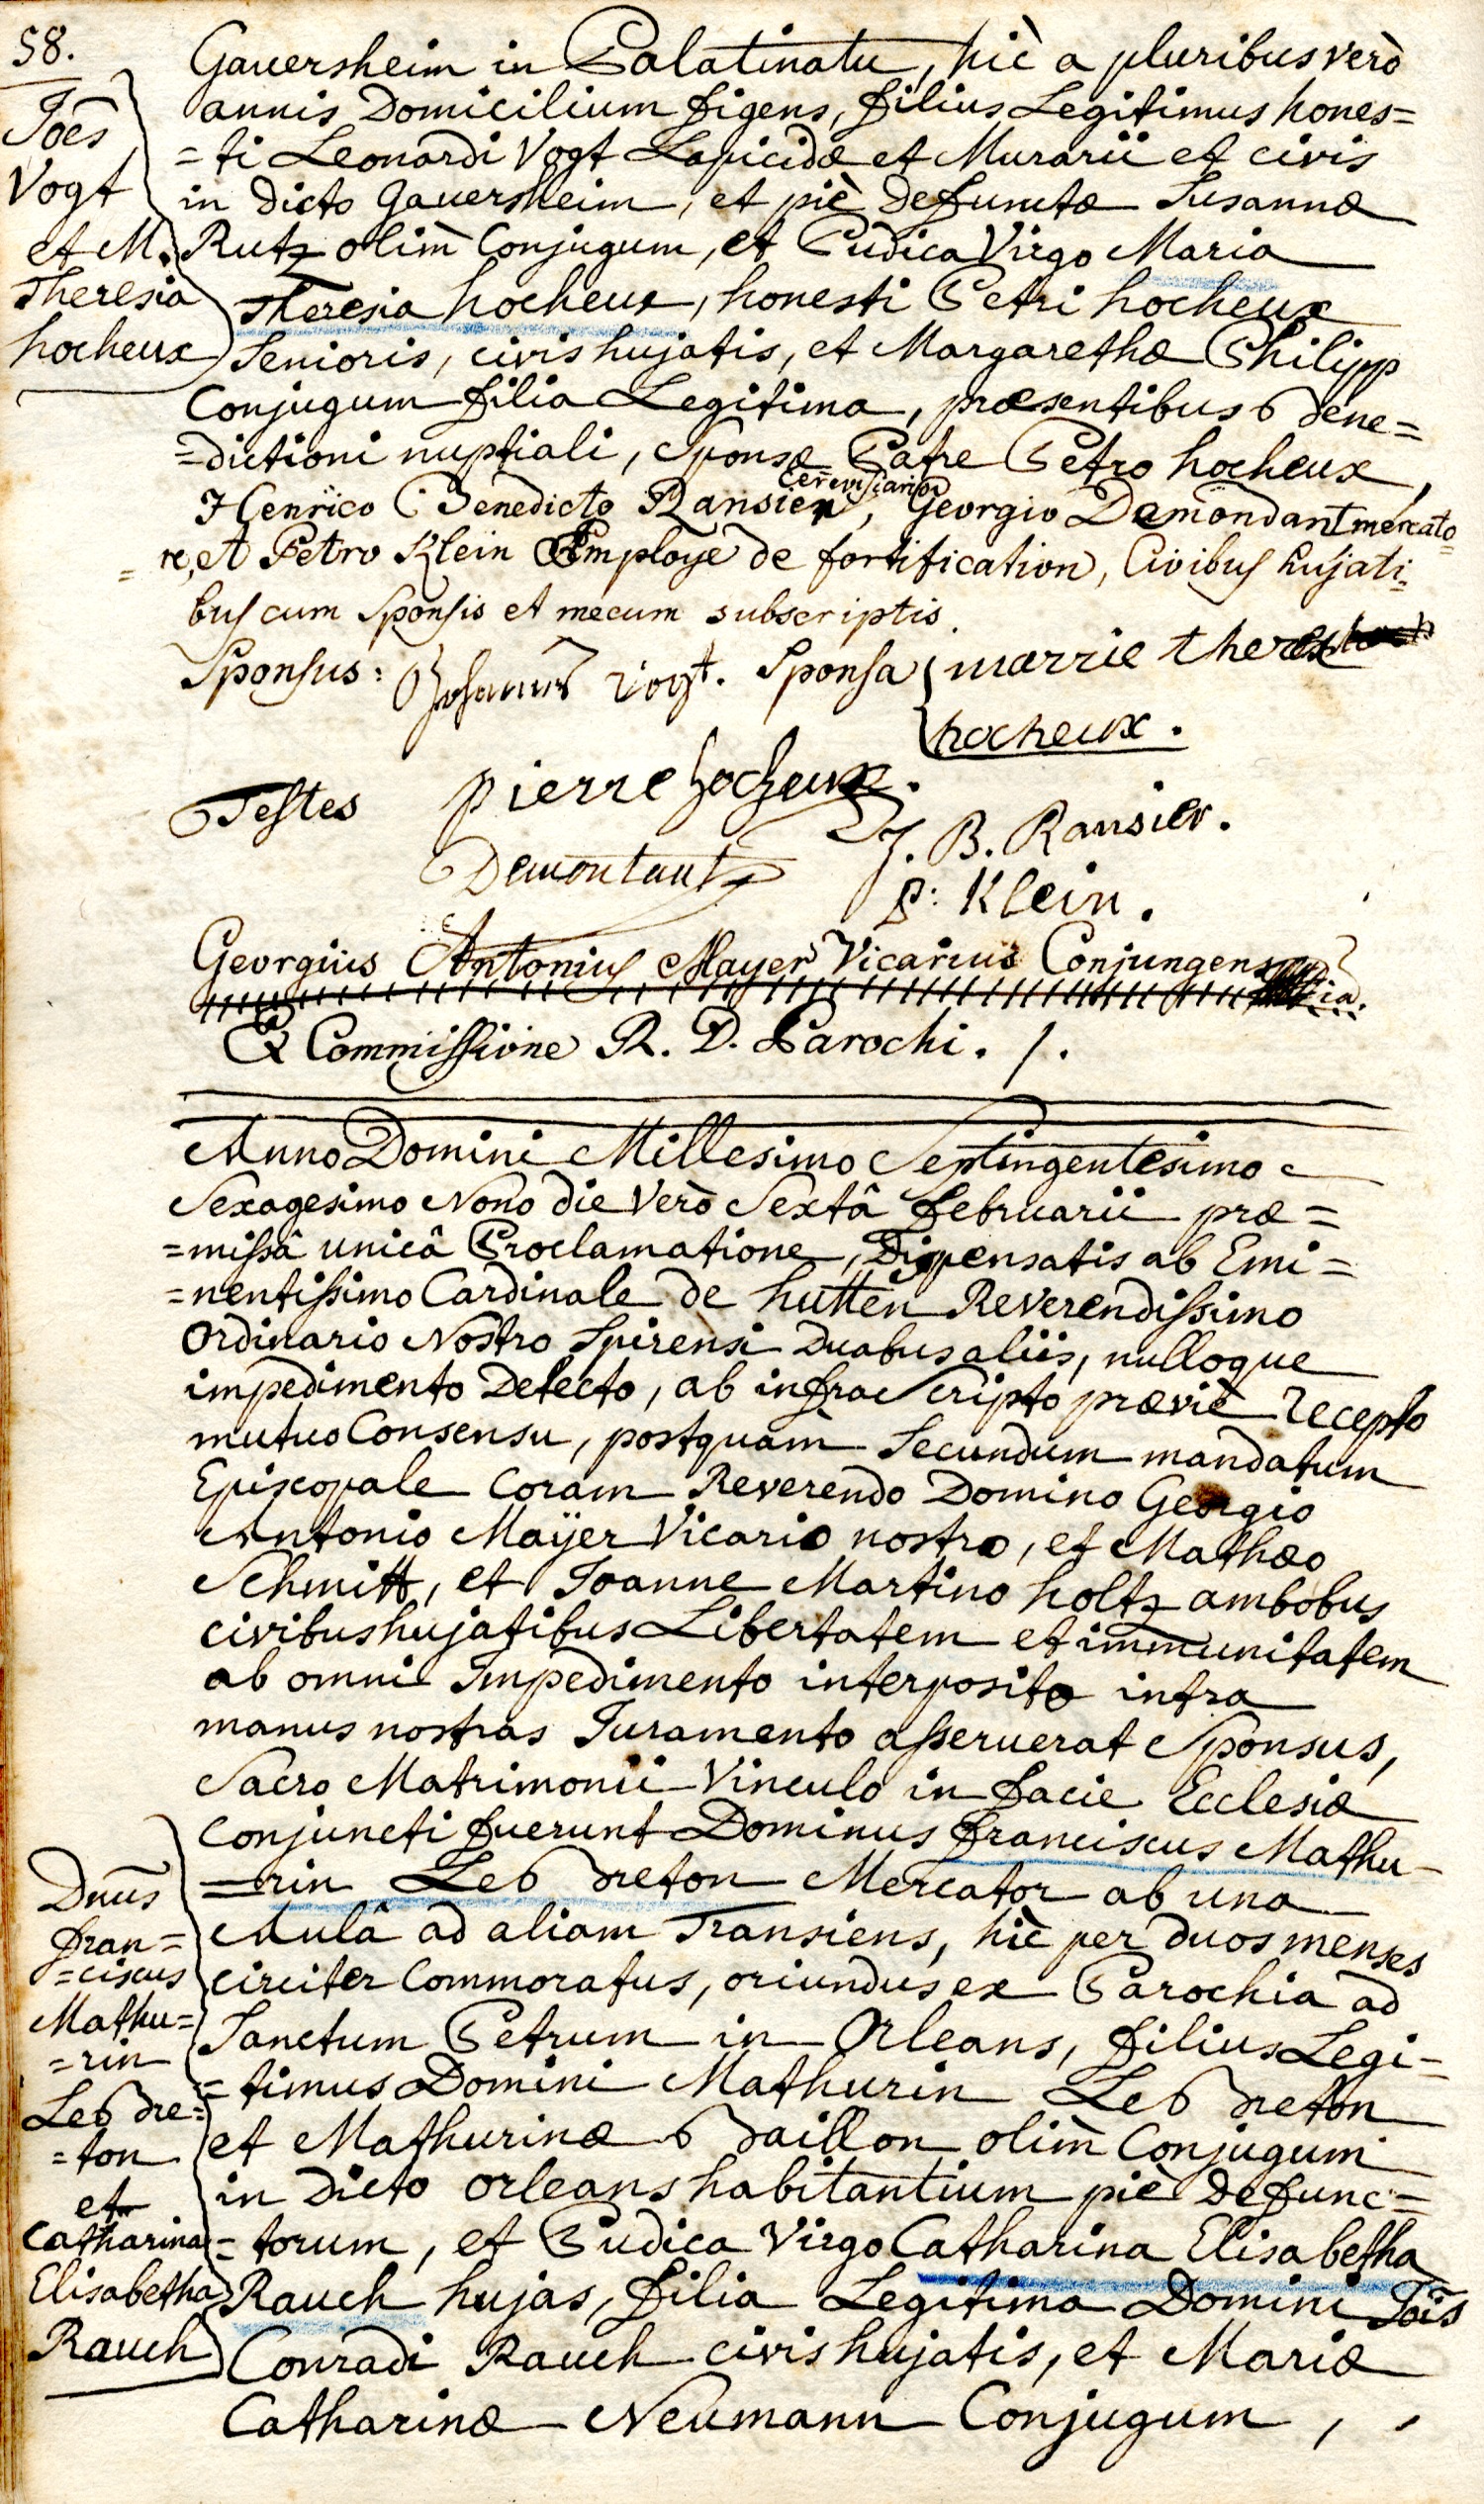 58.
Joēs
Vogt
et M.
Theresia
hocheux
Gauersheim in Palatinatu, hìc a pluribus verò
annis Domicilium figens, filius Legitimus hones=
=ti Leonardi Vogt Lapicidæ et Murarii et civis
in dicto Gauersheim, et piè defunctæ Susannæ
Rutz olim̀ Conjugum, et Pudica Virgo Maria
Theresia hocheux, honesti Petri hocheux
Senioris, civis hujatis, et Margarethæ Philipp
Conjugum filia Legitima, præsentibus Bene=
=dictioni nuptiali, Sponsæ Patre Petro hocheux,
Cerevisiario
Henrico Benedicto Ransier, Georgio Damondant mercato=
=re, et Petro Klein Employé de fortification, Civibus hujati=
bus cum Sponsis et mecum subscriptis.
Sponsus: Johannes Vogt. Sponsa marrie theres
hocheux.
Testes pierre hocheux.
J. B. Ransier.
Demontant
P: Klein.
Georgius Antonius Mayer Vicarius Conjungens
Ex Commissione R. D. Parochi. /.
Anno Domini Millesimo Septingentesimo
Sexagesimo Nono die Verò Sextâ februarii præ=
=missâ unicâ Proclamatione, Dispensatis ab Emi=
=nentissimo Cardinale de hutten Reverendissimo
Ordinario Nostro Spirensi Duabus aliis, nulloque
impedimento Detecto, ab infrascripto præviè recepto
mutuo Consensu, postquam̀ Secundum mandatum
Episcopale Coram Reverendo Domino Georgio
Antonio Maÿer Vicario nostro, et Mathæo
Schmitt, et Joanne Martino holtz ambobus
civibus hujatibus Libertatem et immunitatem
ab omni Impedimento interposito intra
manus nostras Juramento asseruerat Sponsus,
Sacro Matrimonii Vinculo in facie Ecclesiæ
Conjuncti fuerunt Dominus franciscus Mathu-
=rin Le Breton Mercator ab una
Aulâ ad aliam Transiens, hìc per duos menses
circiter Commoratus, oriundus ex Parochia ad
Sanctum Petrum in Orleans, filius Legi=
=timus Domini Mathurin Le Breton
et Mathurinæ Baillon olim̀ Conjugum
in Dicto Orleans habitantium piè Defunc=
=torum, et Pudica Virgo Catharina Elisabetha
Rauch hujas, filia Legitima Domini Joīs
Conradi Rauch civis hujatis, et Mariæ
Catharinæ Neumann Conjugum,
Dnūs
fran=
=ciscus
Mathu=
=rin
Le Bre=
=ton
et
Catharina
Elisabetha
Rauch